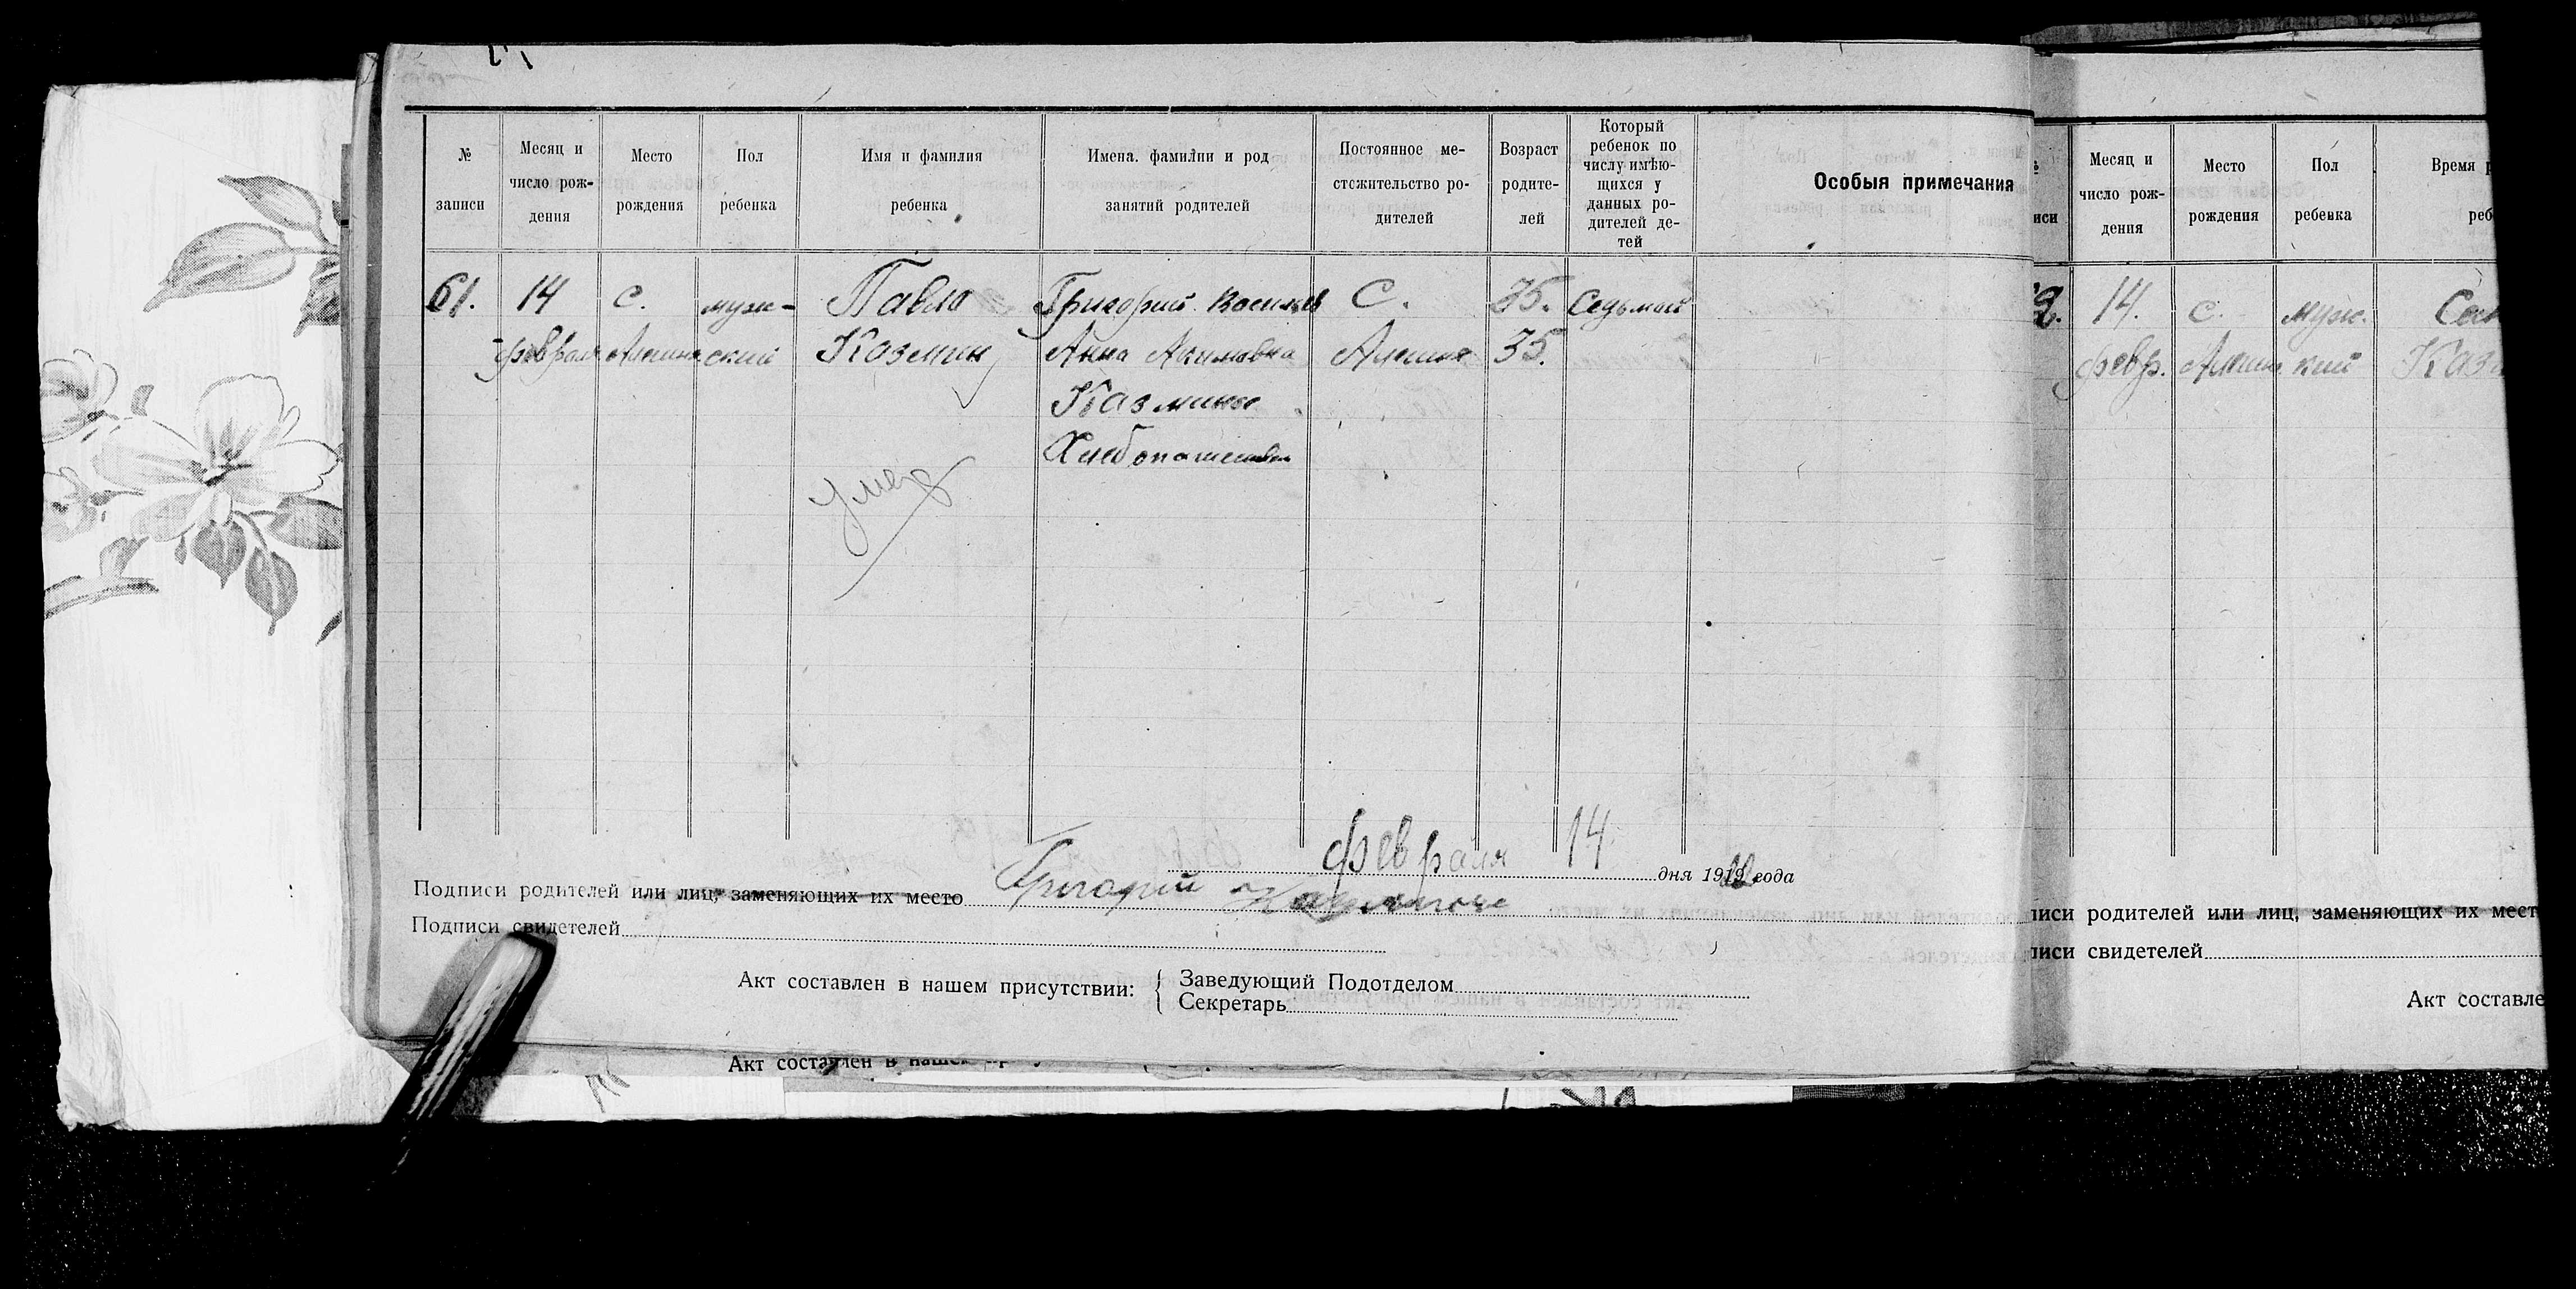 № записи
Месяц и число рож-
дения
Место рождения
Пол ребенка
Имя и фамилия ребенка
Имена. фамилии и род занятий родителей
Постоянное ме-
стожительство ро-
дителей
Возраст родите-
лей
Который ребенок по числу имѣю-
щихся у данных ро-
дителей де-
тей
Особыя примечания
61.
14
с.
муж-
Павло
Григорий Васильев
С.
35.
Седьмой
февраля
ский
Казмин
Анна Акимовна
35.
Казмины
Хлебопашество
умер
февраля 14
дня 19 года
Подписи родителей или лиц, заменяющих их место Григорий
Подписи свидетелей
Акт составлен в нашем присутствии:
Заведующий Подотделом
Секретарь
Акт составлен в
иси
Месяц и
число рож-
дения
Место
рождения
Пол
ребенка
Время
2.
14.
с.
муж.
февр.
кий
писи родителей или лиц, заменяющих их мест
писи свидетелей
Акт составле